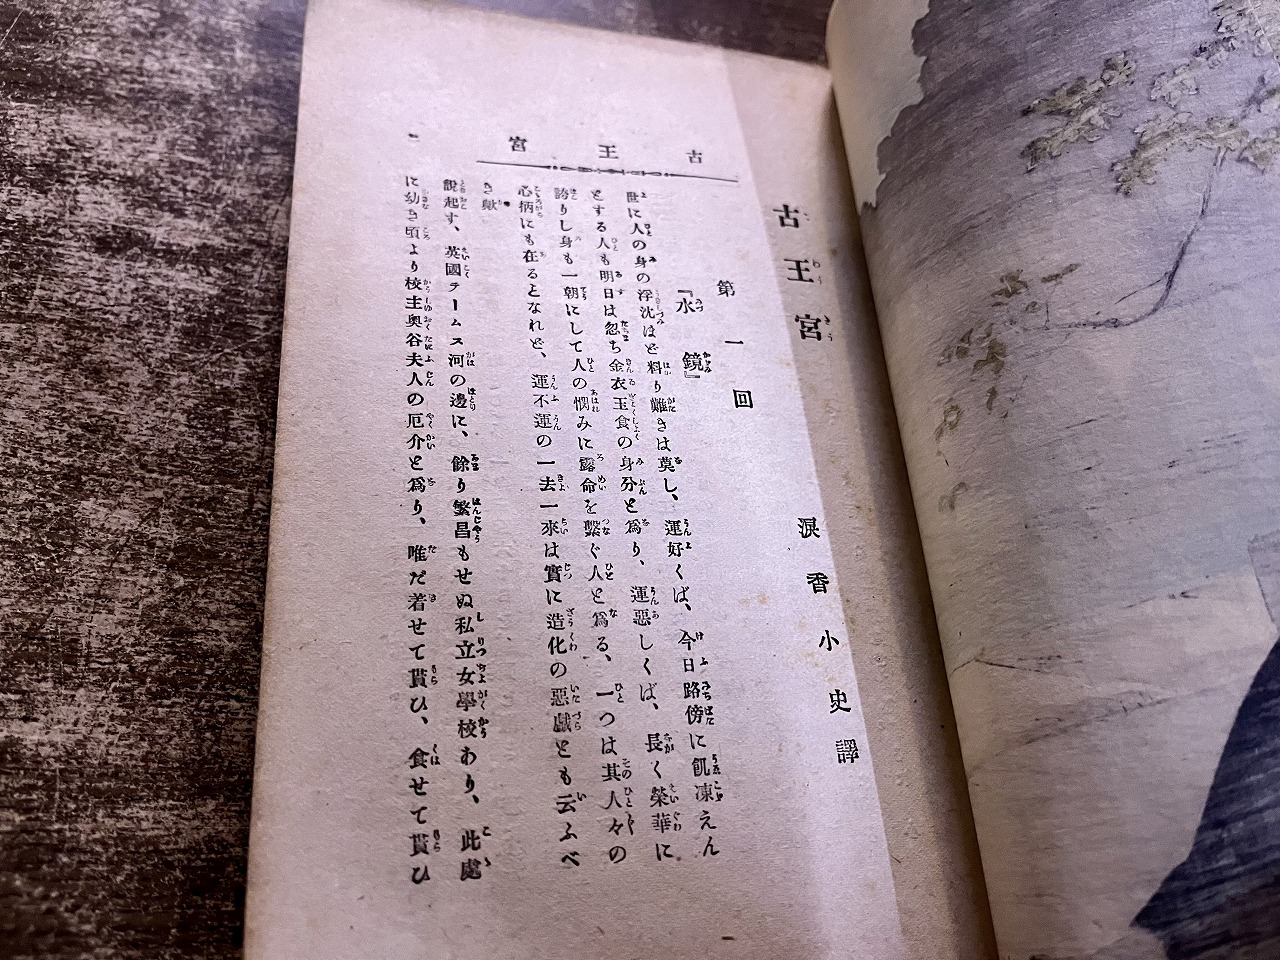 古王宮
古王宮
涙香小史譯
第一回
『水鏡』
世に人の身の浮沈ほど料り難きは莫し、運好くば、今日路傍に飢凍えん
とする人も明日は忽ち金衣玉食の身分と爲り、運惡しくば、長く榮華に
誇りし身も一朝にして人の憫みに露命を繋ぐ人と爲る、一つは其人々の
心柄にも在るとなれど、運不運の一去一來は實に造化の惡戯とも云ふべ
き歟
說起す、英國テームス河の邊に、餘り繁昌もせぬ私立女學校あり、此處
に幼き頃より校主奥谷夫人の厄介と爲り、唯だ着せて貰ひ、食せて貰ひ
一